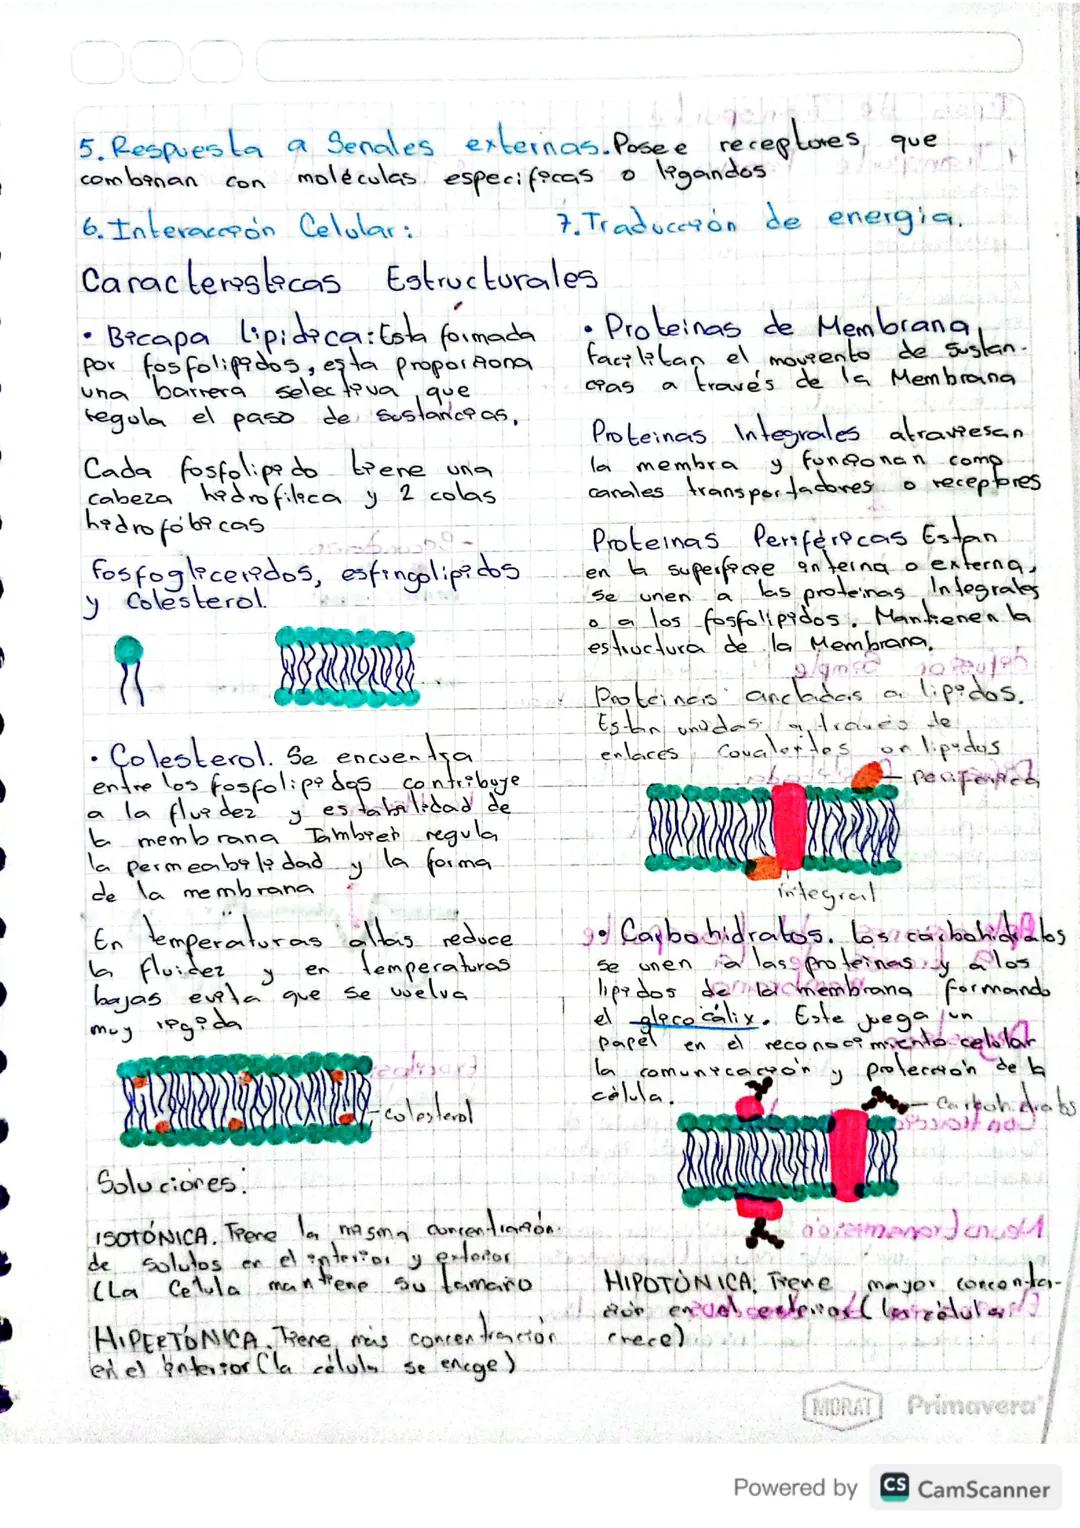 5. Respuesta a Señales externas. Posee receptores que
combinan con moléculas especificas o ligandos
6. Interacción Celular:
7. Traducción de energia.
Caracteristicas Estructurales
• Bicapa lipidica: Esta formada
por fosfolipidos, esta proporciona
una barrera selectiva que
regula el paso de sustancias.
Cada fosfolipido tiene una
cabeza hidrofilica y 2 colas
hidrofóbicas
Fosfogliceridos, esfingolipidos
y Colesterol.
• Colesterol. Se encuentra
entre los fosfolipidos contribuye
a la fluidez y estabilidad de
la membrana Tambien regula
la permeabilidad y la forma
de la membrana
En temperaturas altas reduce
la fluidez y en temperaturas
bajas evita que se vuelva
muy rigida
colesterol
Soluciones:
ISOTÓNICA. Tiene la misma concentración
de solutos en el interior y exterior
(La Celula mantiene su tamaño
HIPERTÓNICA. Tiene más concentración
en el interior (la célula se encge)
• Proteinas de Membrana
facilitan el moviento de sustan-
cias a través de la Membrana
Proteinas Integrales atraviesan
la membra y funcionan como
canales transportadores o receptores
Proteinas Periféricas Estan
en la superficie interna o externa,
se unen a las proteinas Integrales
o a los fosfolipidos. Mantienen la
estructura de la Membrana.
Proteinas ancladas a lipidos.
Estan unidas a través de
enlaces Covalentes on lipidos
periferica
integral
• Carbohidratos. los carbohidratos
se unen a las proteinas y a los
lipidos de la membrana formando
el glicocálix. Este juega un
papel en el reconocimiento celular
la comunicación y protección de la
célula.
Carbohidratos
HIPOTÓNICA. Tiene mayor concentra-
ción en el exterior (la célula
crece)
MORAT Primavera
Powered by CS CamScanner